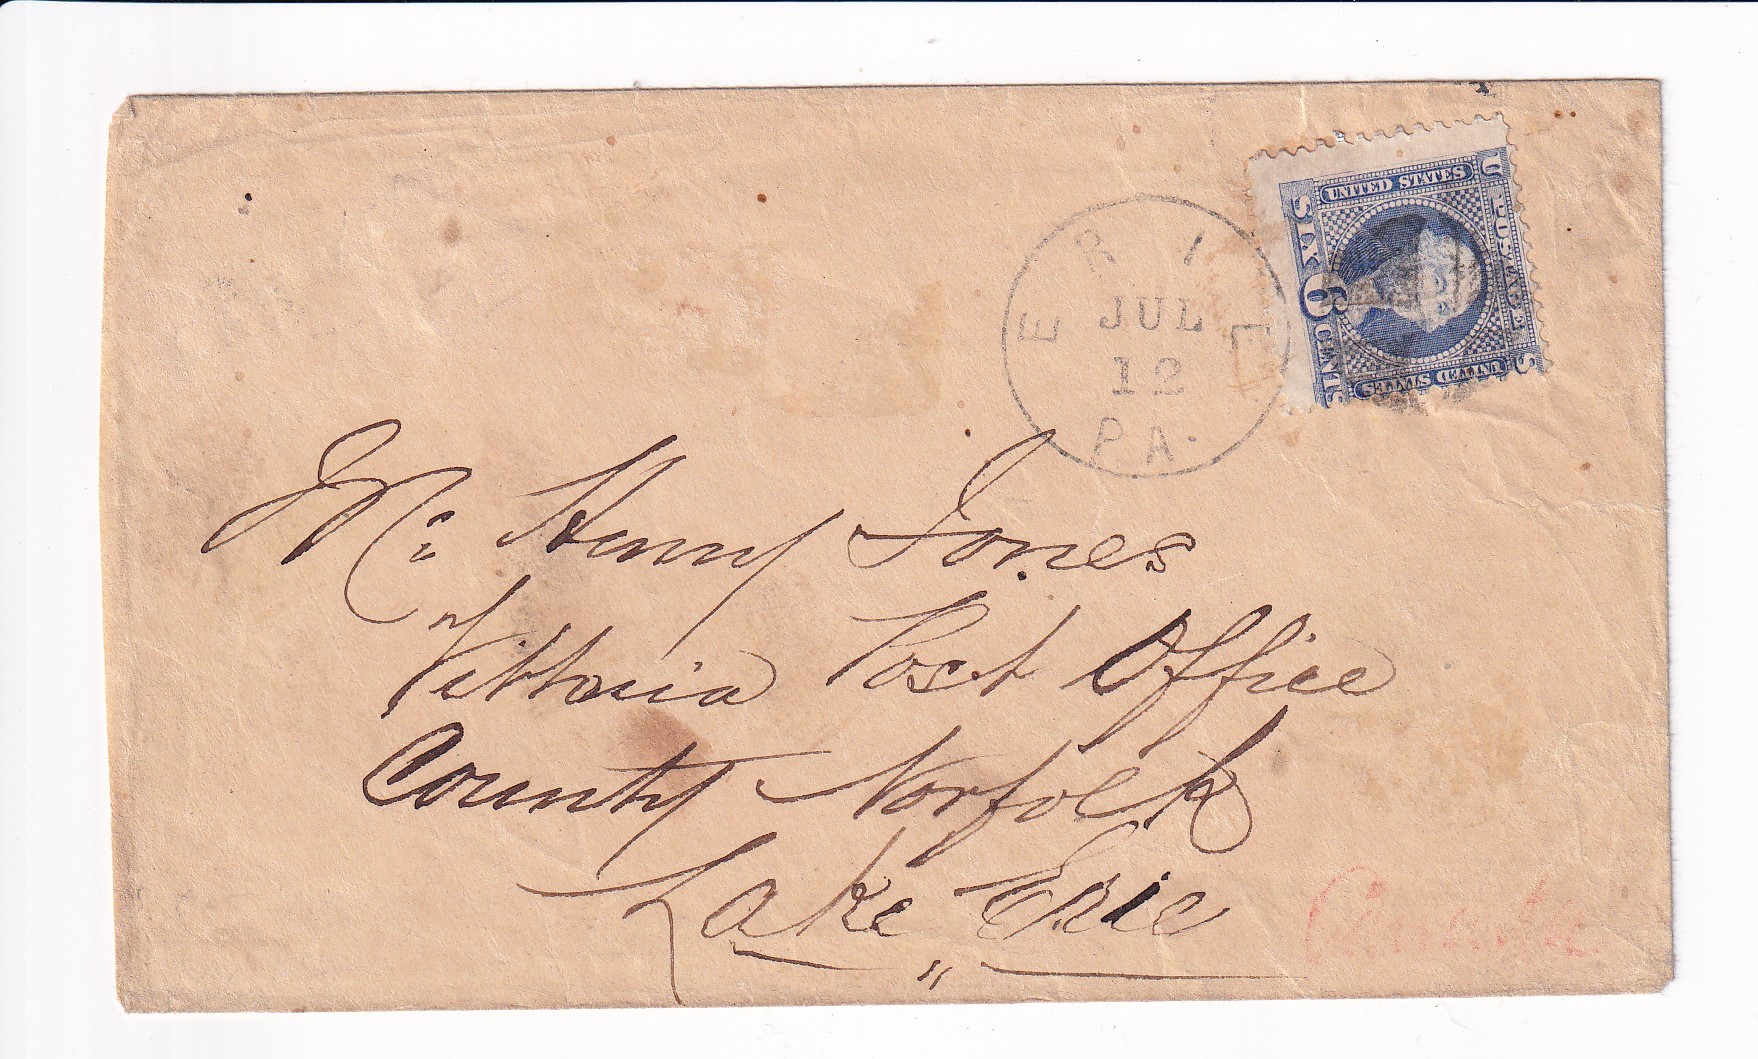 ERIE
JUL
12
PA.
U.S. POSTAGE
UNITED STATES
SIX 6 CENTS
UNITED STATES
Mr. Henry Jones
Vittoria Post Office
County Norfolk
Lake Erie
Canada